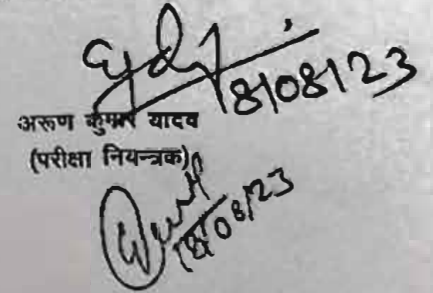 18/08/23
अरूण कुमार यादव
(परीक्षा नियन्त्रक)
18/08/23